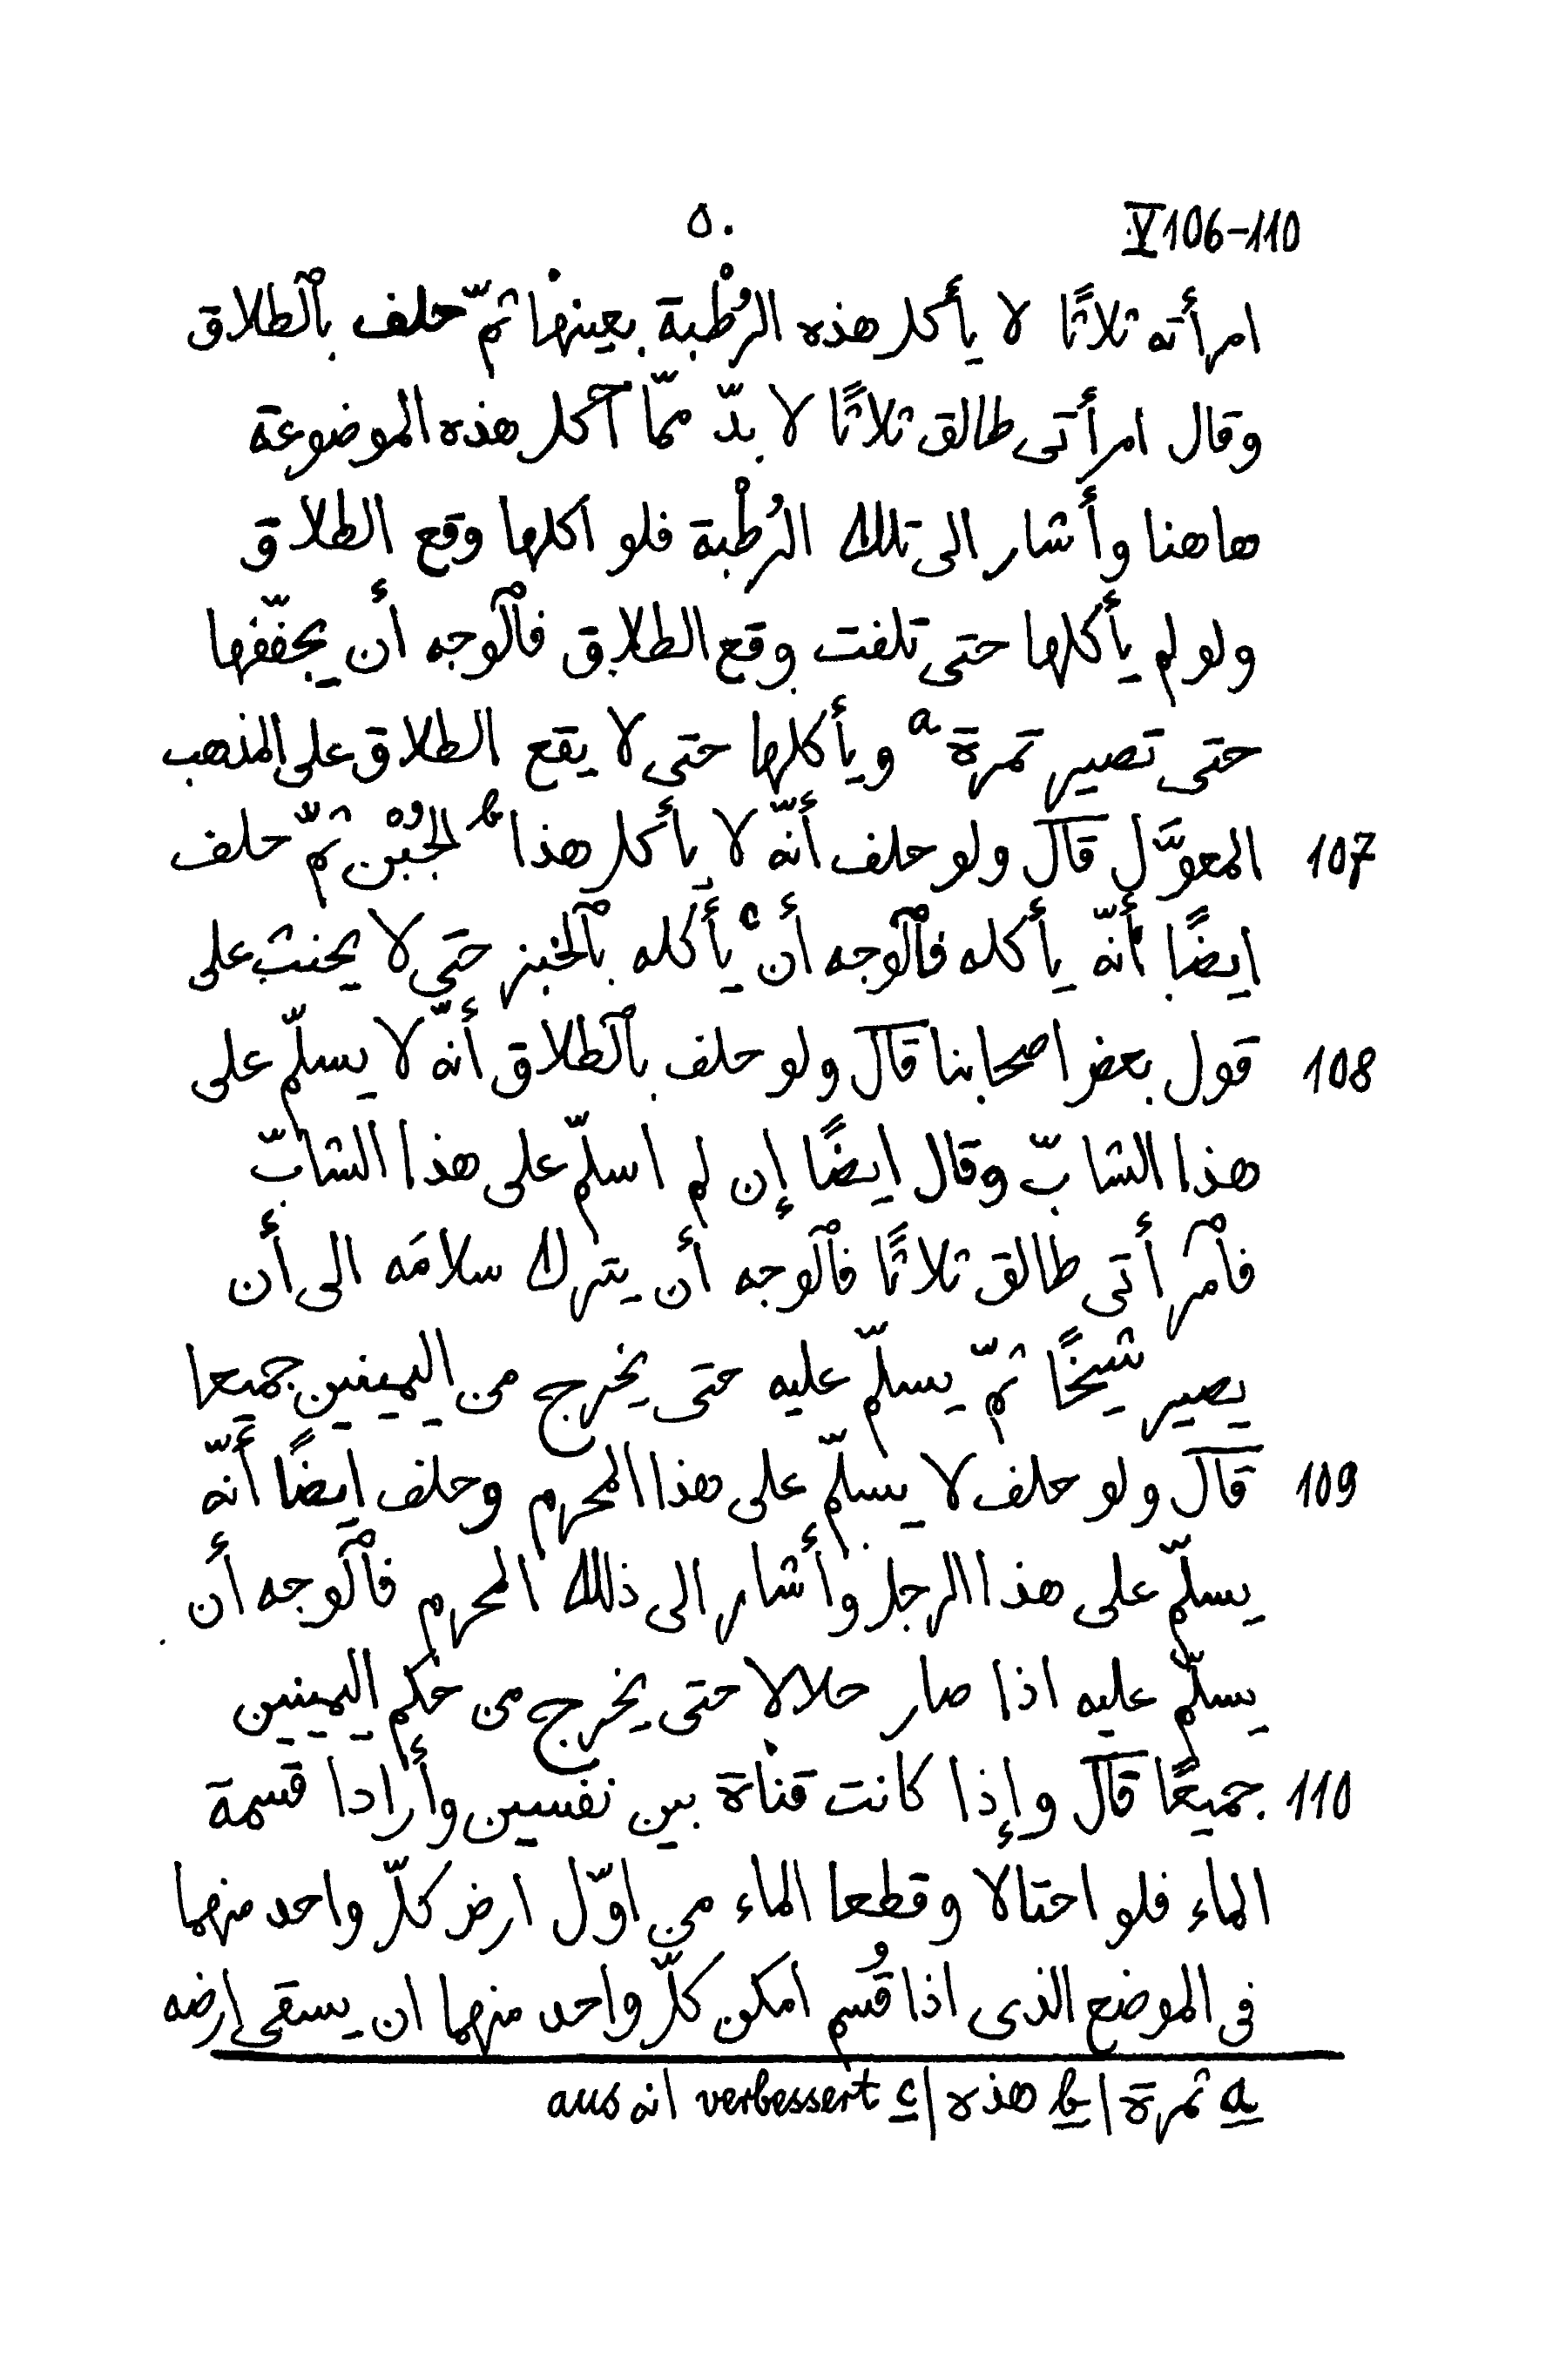 V 106-110
٥٠
امرأته ثلاثًا لا يأكل هذه الرُطْبة بعينها ثمّ حلف بٱلطلاق
وقال امرأتى طالق ثلاثًا لا بدّ ممّا آكل هذه الموضوعة
هاهنا وأشار الى تلك الرُطْبة فلو اكلها وقع الطلاق
ولو لم يأكلها حتى تلفت وقع الطلاق فٱلوجه أن يجفّفها
حتى تصير تمرة a ويأكلها حتى لا يقع الطلاق على المذهب
107 المعوَّل قال ولو حلف أنّه لا يأكل هذا b الجُبْن ثمّ حلف
ايضًا أنّه يأكله فٱلوجه أن c يأكله بٱلخبز حتى لا يحنث على
108 قول بعض اصحابنا قال ولو حلف بٱلطلاق أنّه لا يسلّم على
هذا الشابّ وقال ايضًا إن لم اسلّم على هذا الشابّ
فٱمرأتى طالق ثلاثًا فٱلوجه أن يترك سلامَه الى أن
يصير شيخًا ثمّ يسلّم عليه حتى يخرج من اليمينين جميعا
109 قال ولو حلف لا يسلّم على هذا المحرم وحلف ايضًا أنّه
يسلّم على هذا الرجل وأشار الى ذلك المحرم فٱلوجه أن
يسلّم عليه اذا صار حلالا حتى يخرج من حكم اليمينين
110 جميعًا قال وإذا كانت قناة بين نفسين وأرادا قسمة
الماء فلو احتالا وقطعا الماء من اوّل ارض كلّ واحد منهما
فى الموضع الذى اذا قُسم امكن كلّ واحد منهما ان يسقى ارضه
a ثمرة | b هذه | c verbessert aus انه